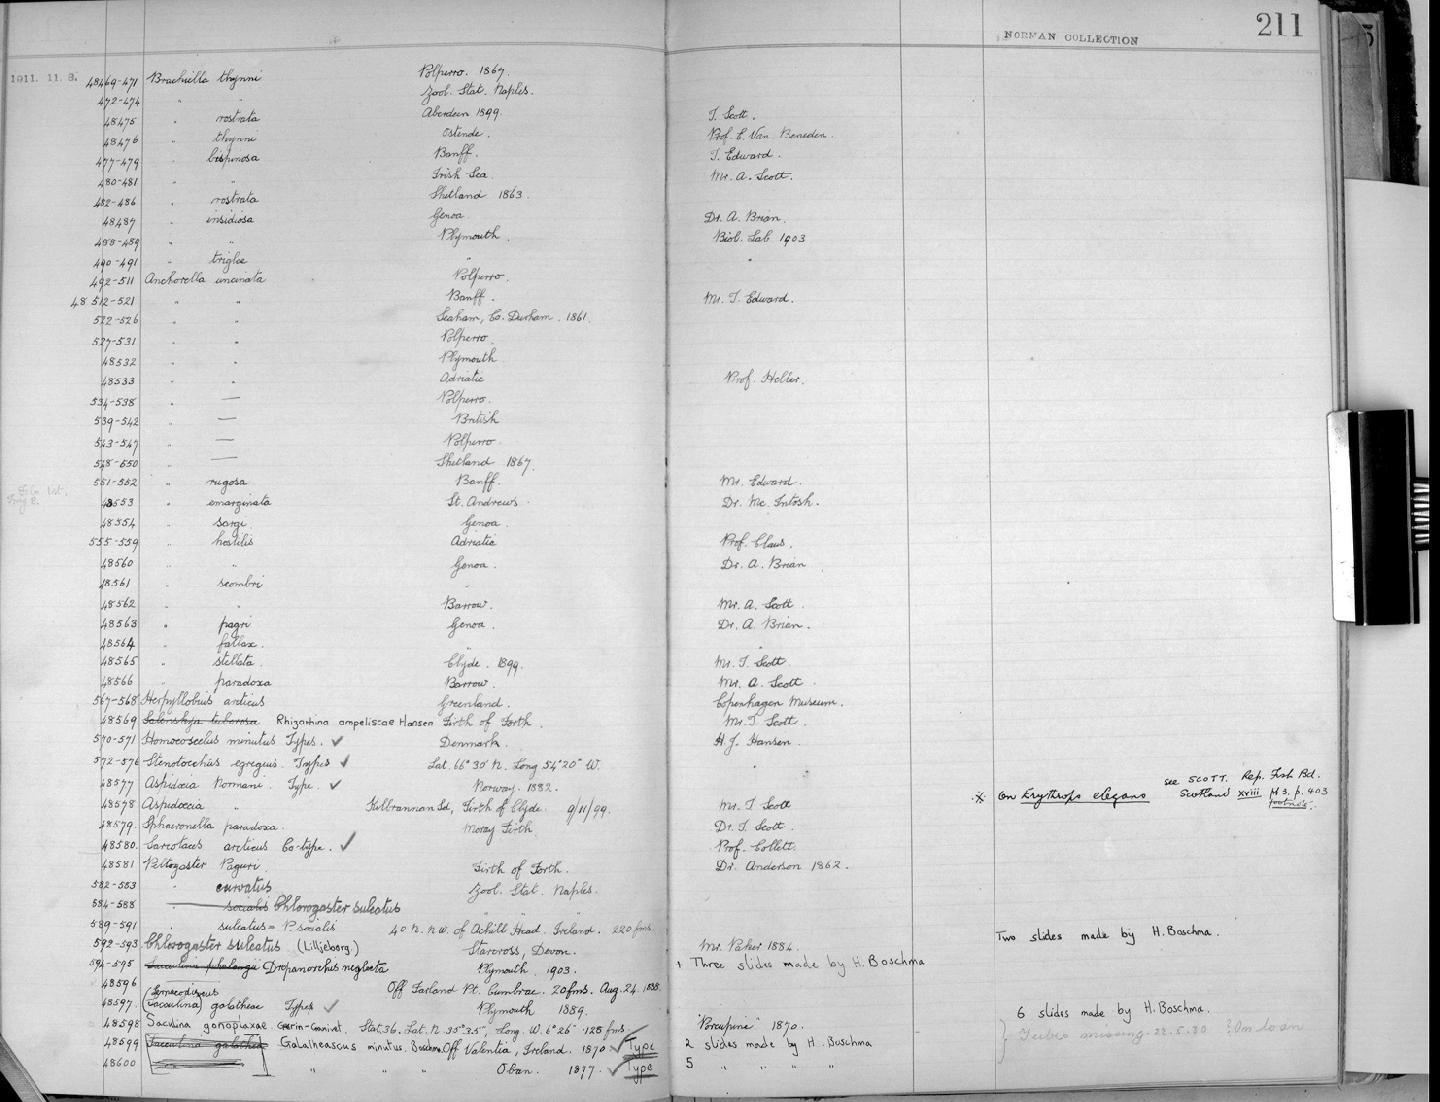 NORMAN COLLECTION 211
1911. 11. 8. 48469-471 Brachiella thynni Polperro. 1867.
472-474 " " Zool. Stat. Naples.
48475 " rostrata Aberdeen 1899. T. Scott.
48476 " thynni Ostende. Prof. E. Van Beneden.
477-479 " bispinosa Banff. T. Edward.
480-481 " " Irish Sea. Mr. A. Scott.
482-486 " rostrata Shetland 1863.
48487 " insidiosa Genoa. Dr. A. Brian.
488-489 " " Plymouth. Biol. Lab. 1903
490-491 " triglae " "
492-511 Anchorella uncinata Polperro.
48512-521 " " Banff. Mr. T. Edward.
522-526 " " Seaham, Co. Durham. 1861.
527-531 " " Polperro.
48532 " " Plymouth
48533 " " Adriatic Prof. Heller.
534-538 " — Polperro.
539-542 " — British
543-547 " — Polperro.
548-550 " — Shetland 1867.
551-552 " rugosa Banff. Mr. Edward.
48553 " emarginata St. Andrews. Dr. Mc. Intosh.
48554 " sargi Genoa.
555-559 " hostilis Adriatic Prof. Claus.
48560 " " Genoa. Dr. A. Brian
48561 " scombri "
48562 " " Barrow. Mr. A. Scott.
48563 " pagri Genoa. Dr. A. Brian.
48564 " fallax. " "
48565 " stellata Clyde. 1899. Mr. T. Scott.
48566 " paradoxa Barrow. Mr. A. Scott.
567-568 Herpyllobius arcticus Greenland. Copenhagen Museum.
48569 Salenskya tuberosa Rhizorhina ampeliscae Hansen Firth of Forth. Mr. T. Scott.
570-571 Homoeoscelis minutus Types. ✓ Denmark. H. J. Hansen.
572-576 Stenothocheres egregius. Types ✓ Lat. 66° 30' N. Long 54° 20' W. "
48577 Aspidoecia Normani. Type. ✓ Norway. 1882.
see SCOTT. Rep. Fish Bd.
48578 Aspidoecia " Kilbrannan Sd., Firth of Clyde. 9/11/99. Mr. T. Scott * On Erythrops elegans Scotland xviii pt 3. p. 403
footnote.
48579. Sphaeronella paradoxa. Moray Firth. Dr. T. Scott.
48580. Sarcotaces arcticus Co-type. ✓ Prof. Collett.
48581 Peltogaster Paguri Firth of Forth. Dr. Anderson 1862.
582-583 " curvatus Zool. Stat. Naples.
584-588 " socialis Chlorogaster sulcatus " " "
589-591 " sulcatus = P. socialis 40 N. N.W. of Achill Head. Ireland. 220 fms.
592-593 Chlorogaster sulcatus (Lilljeborg.) Starcross, Devon. Mr. Parker 1884. Two slides made by H. Boschma.
594-595 Sacculina phalangii Drepanorchis neglecta Plymouth. 1903. Three slides made by H. Boschma
48596 Off Farland Pt. Cumbrae. 20 fms. Aug. 24. 1888.
48597. (Sacculina) galatheae Types ✓ Plymouth 1889. 6 slides made by H. Boschma.
48598 Sacculina gonoplaxae Guérin-Ganivet. Stat. 36. Lat. N. 35° 35', Long. W. 6° 26' 128 fms. "Porcupine" 1870. Tubes missing 22.5.80 ? On loan
48599 Sacculina galatheae Galatheascus minutus. Boschma Off Valentia, Ireland. 1870 ✓ Type 2 slides made by H. Boschma
48600 " " " Oban. 1877. ✓ Type 5 " " " "